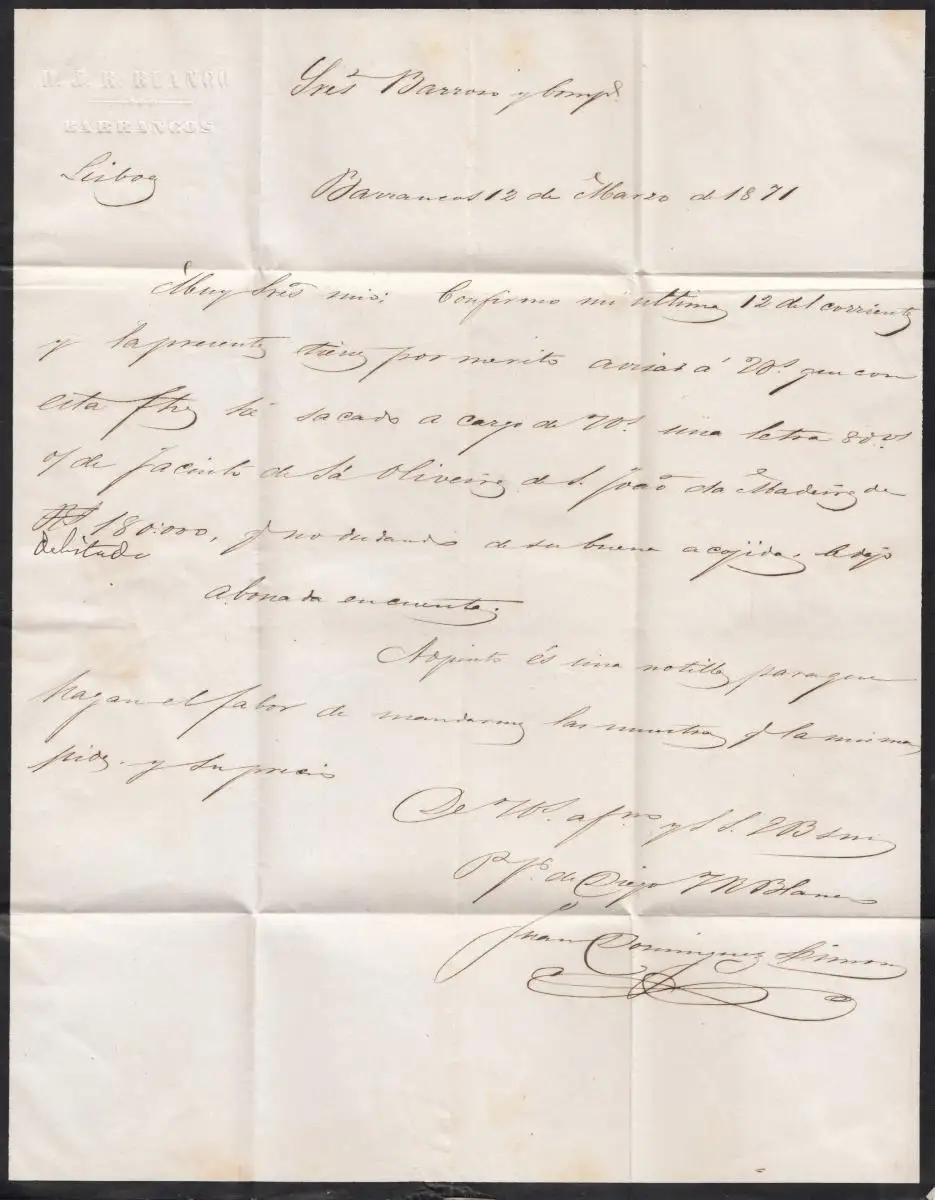 D. J. R. BLANCO
BARRANCOS
Sres Barroso y Compª
Lisboa
Barrancos 12 de Marzo de 1871
Muy Sres mios: Confirmo mi ultima 12 del corriente
y la presente tiene por merito avisar á Vs. que con
esta fha hé sacado a cargo de Vs. una letra 8 d/v
o/ de Jacinto de Sá Oliveira de S. João da Madeira de
Rs 180:000, q no dudando de su buena acojida, le dejo
debitado
abonada en cuenta.
Adjunto és una notilla para que
hagan el fabor de mandarme las muestras q la misma
pide y su precio
De Vs. afmo y S. S. Q B S m
P. P. de Diego Blanco
Juan Dominguez Simon